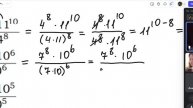 11^10 / 7^8 = 4^8 · 11^10 / (4·11)^8 = 4^8 · 11^10 / 4^8 · 11^8 = 11^(10-8) =
10^6 = 7^8 · 10^6 / (7·10)^6 = 7^8 · 10^6
10^5
5